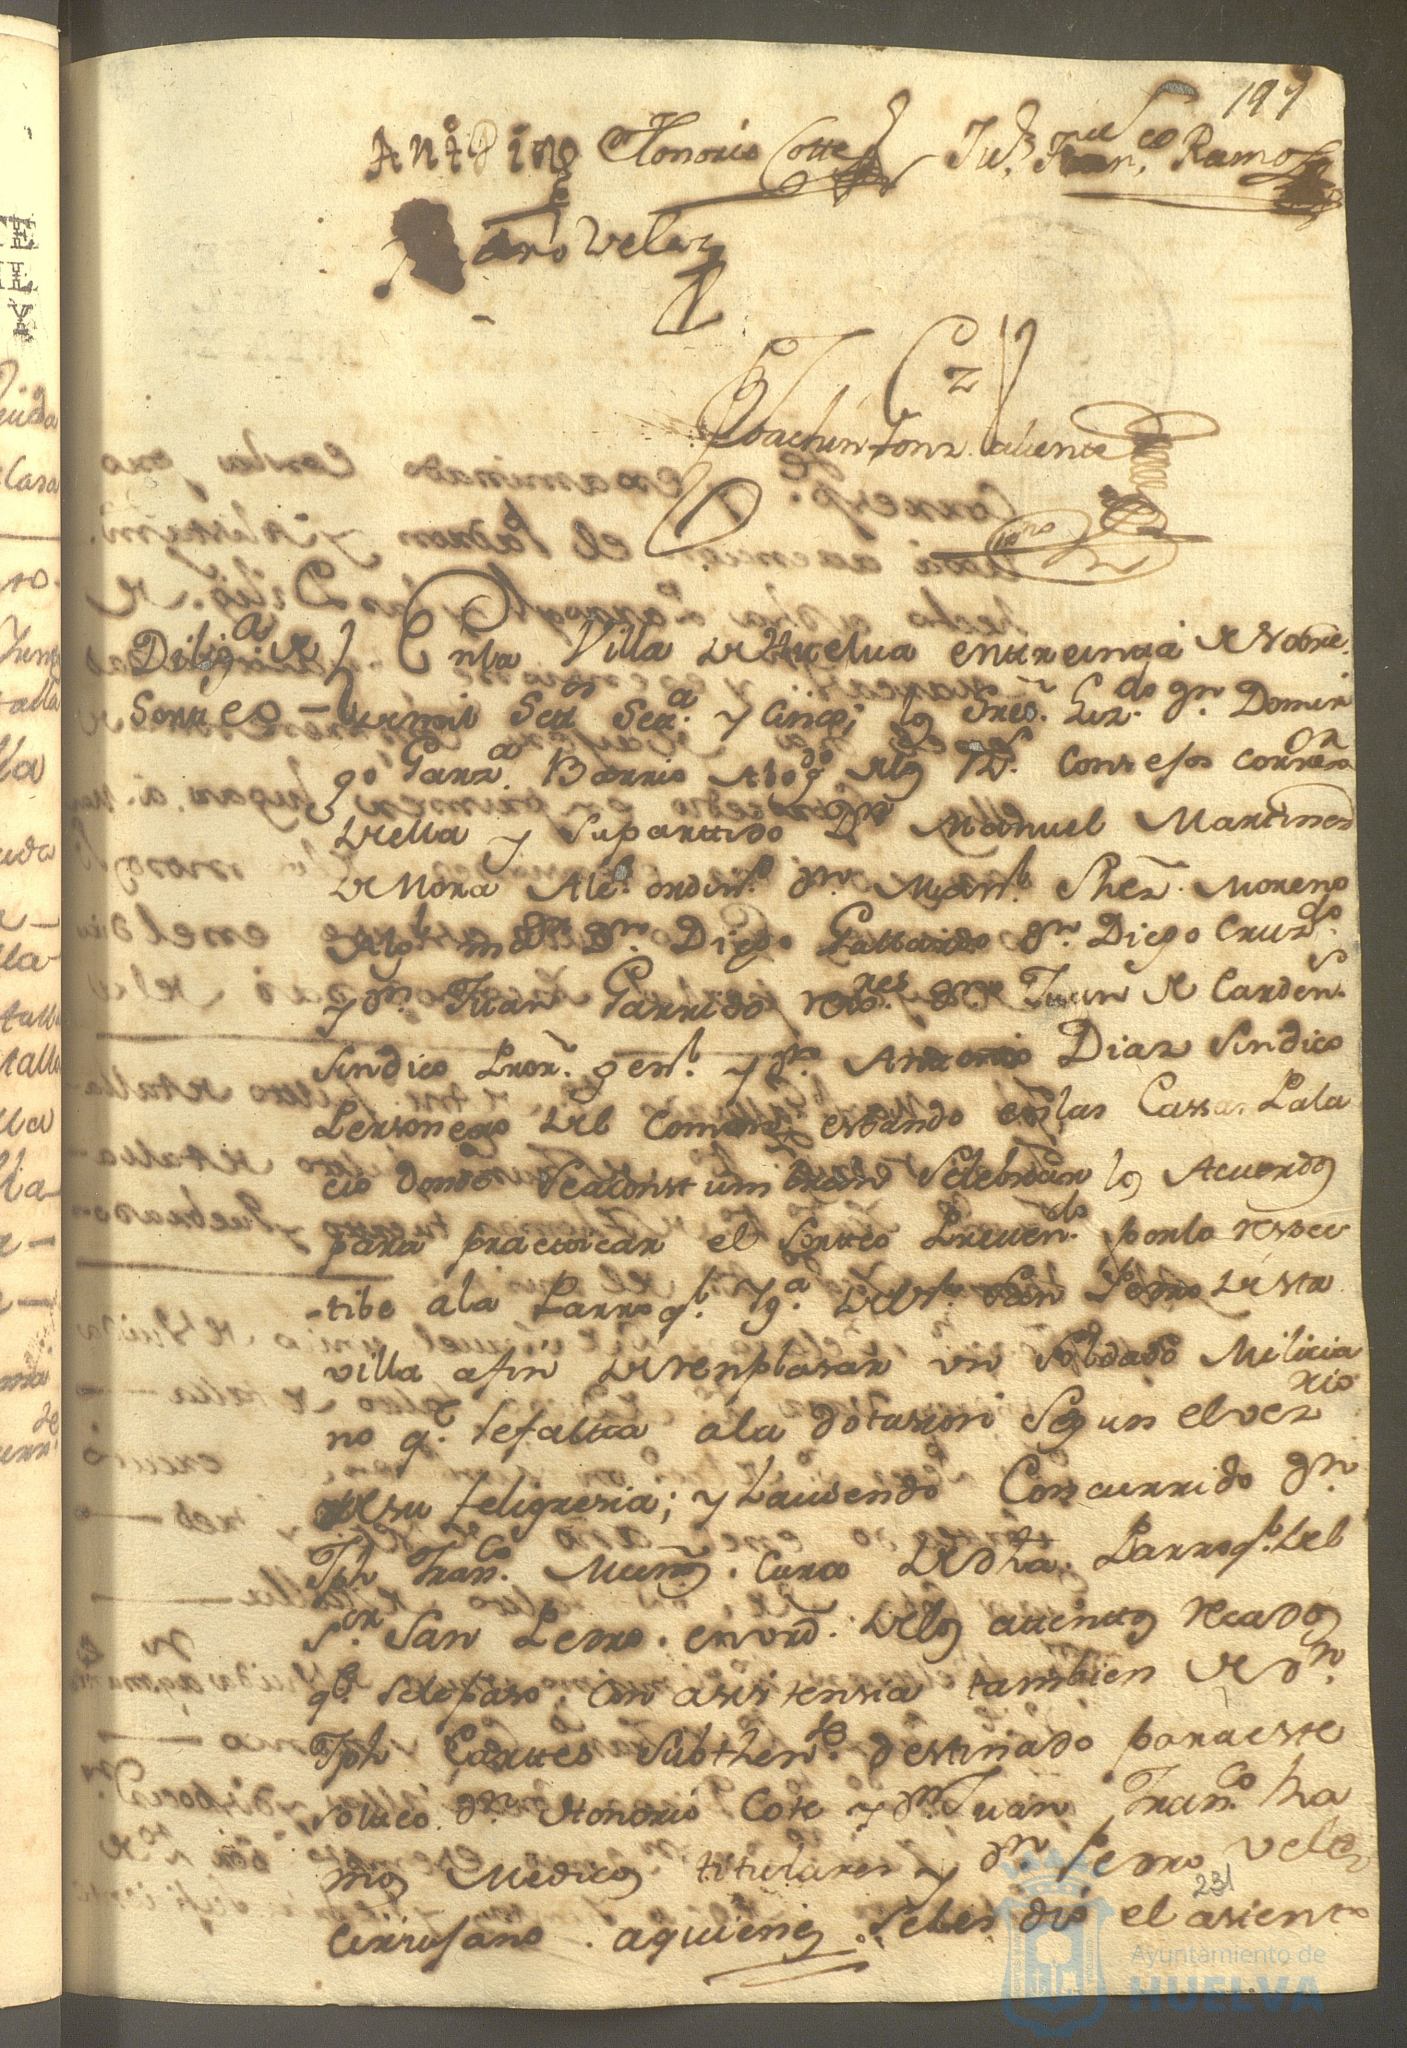 197
Anttº Diaz Honorio Cotte Juº Franco Ramos
Pedro Velez
Joachin Gonz. Valiente
Diligª de
Sorteo
En la Villa de Huelva en treinta de Nobre.
de mil Settos Setª y Cinco; los Sres. Lizdo Dn. Domin
go Garzª Barrio Abogdo de los Rs. Consejos Correxor
de ella y su parttido Dn Manuel Martinez
de Mora Alce. ordinº Dn. Manl. Shez. Moreno
Algl maor Dn. Diego Gallardo Dn. Diego Cruzdo
y Dn. Juan Garrido rexres. Dn Juan de Cardens.
Sindico Pror. genl. y Dn. Antonio Diaz Sindico
Personero del Comun; estando en las Cassas Pala
cio donde se acostumbran Selebrar los Acuerdos
para practticar el Sorteo Prevendo. por lo respec
tibo a la Parroql. Ygª del Sr. San Pedro de esta
villa a fin de renplasar un Soldado Milicia
no q. le falta a la dotasion Segun el vez
rio
de su feligresia; y haviendo Concurrido Dn.
Jph Franco. Muñz. Cura de dha. Parroql. del
Sor San Pedro. en vrd. de los attenttos recados
qe. se le paso, con asistensia tambien de Dn.
Jph Cortes Subthente. destinado para este
Sorteo. Dn Honorio Cote y Dn. Juan Franco. Ra
mos Medicos titulares y Dn. Pedro Velez
Cirujano. a quienes Se les dio el asiento
231
Ayuntamiento de
HUELVA